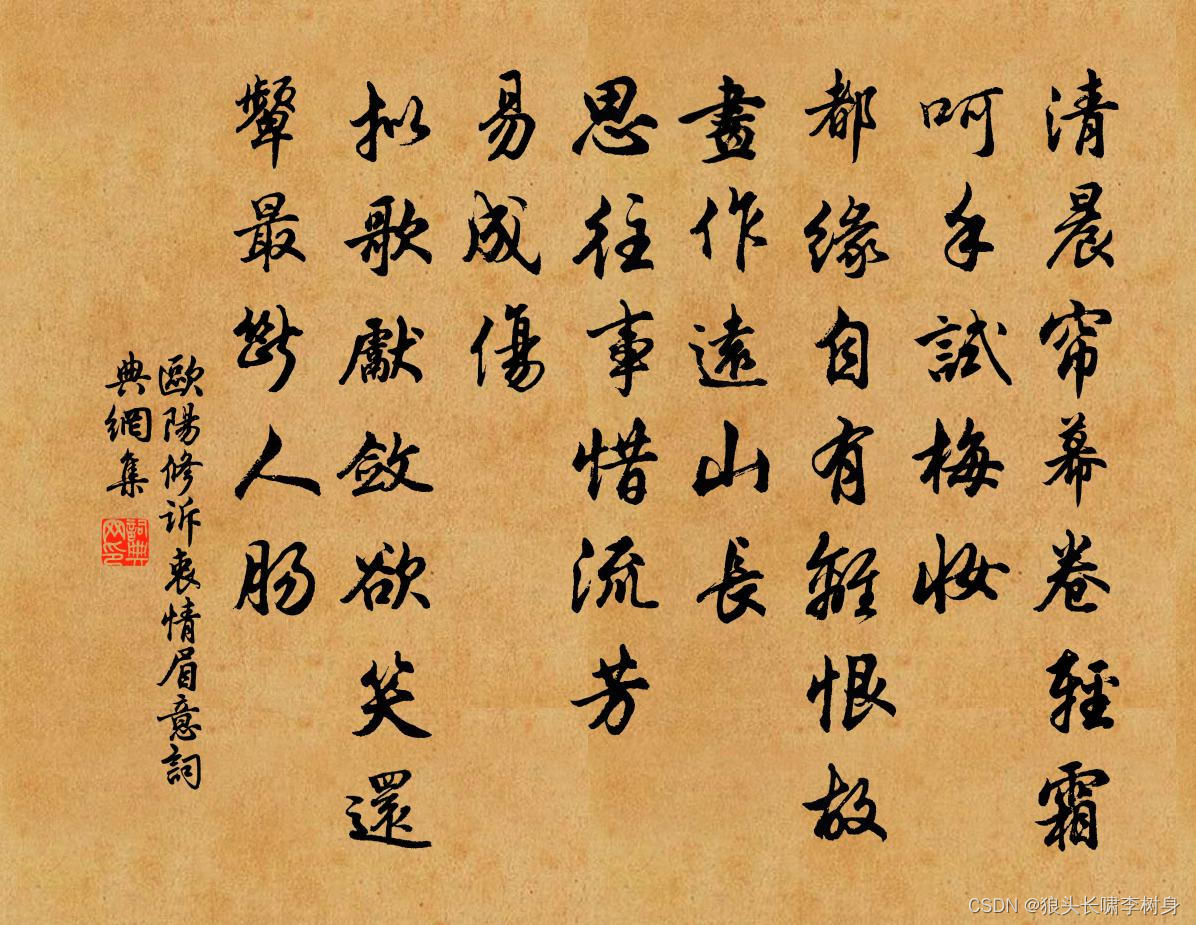 清晨帘幕卷輕霜
呵手試梅妝
都緣自有離恨故
畫作遠山長
思往事惜流芳
易成傷
拟歌獻斂欲笑還
顰最斷人腸
歐陽修诉衷情眉意詞
典網集
詞典網印
CSDN @狼头长啸李树身